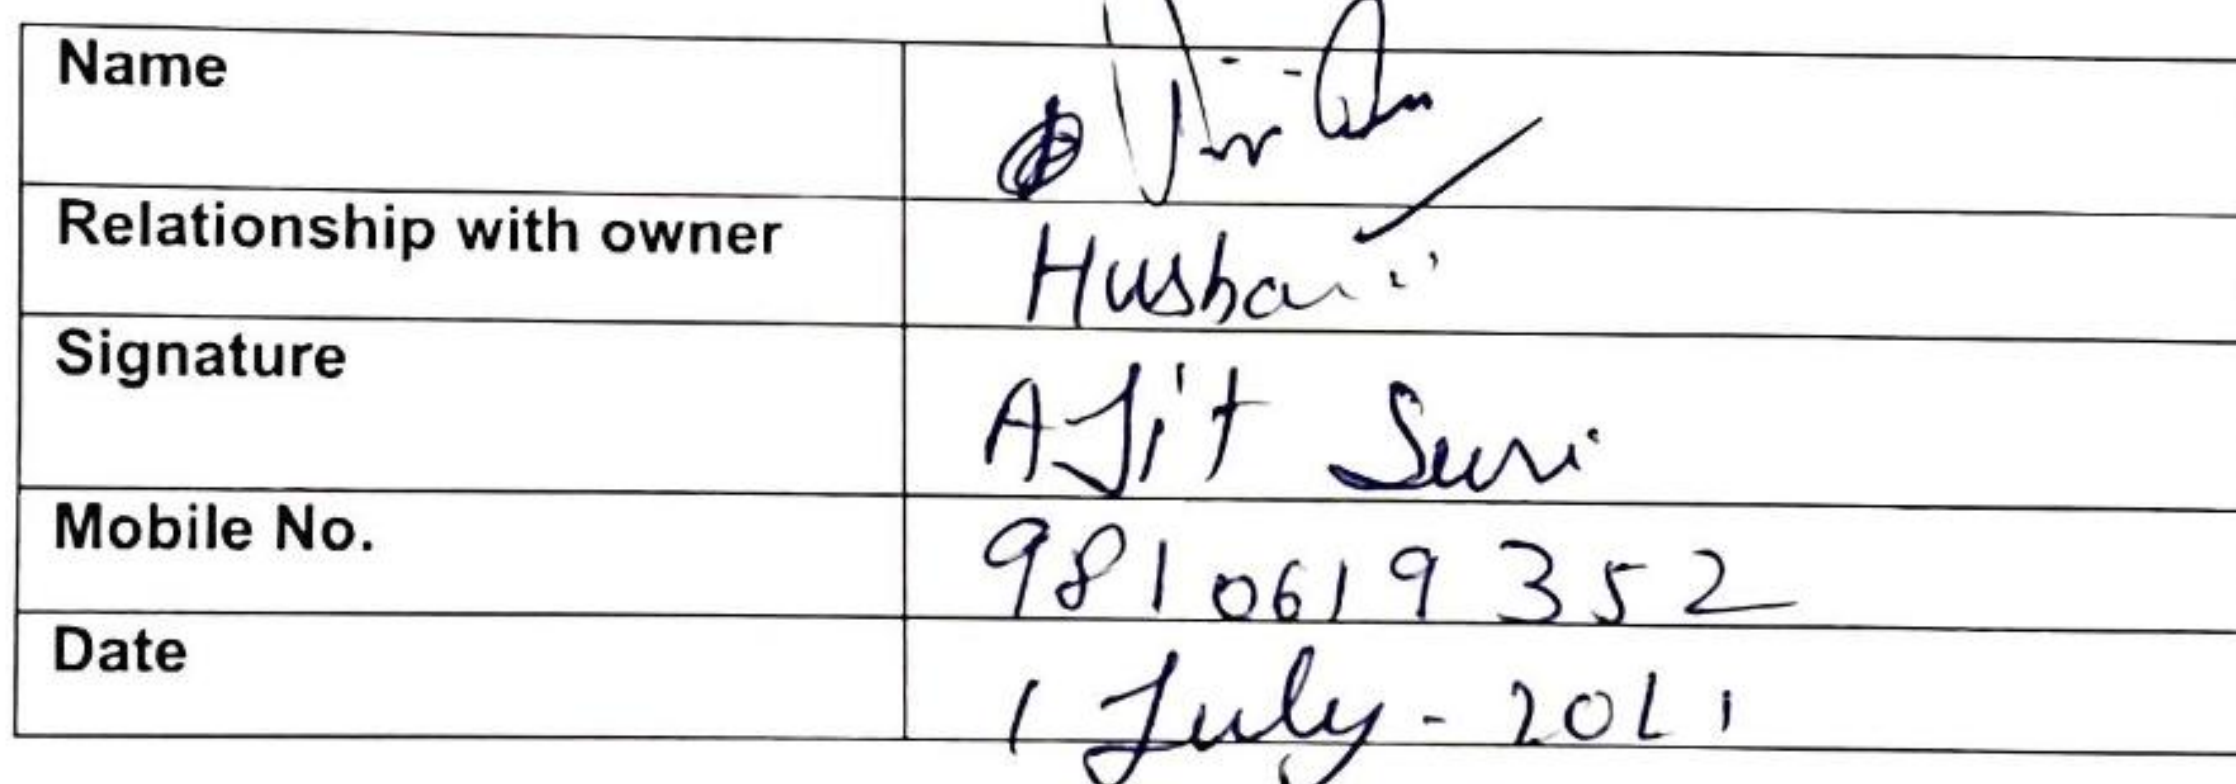 Name
Relationship with owner Husband
Signature AJit Suri
Mobile No. 9810619352
Date 1 July - 2021